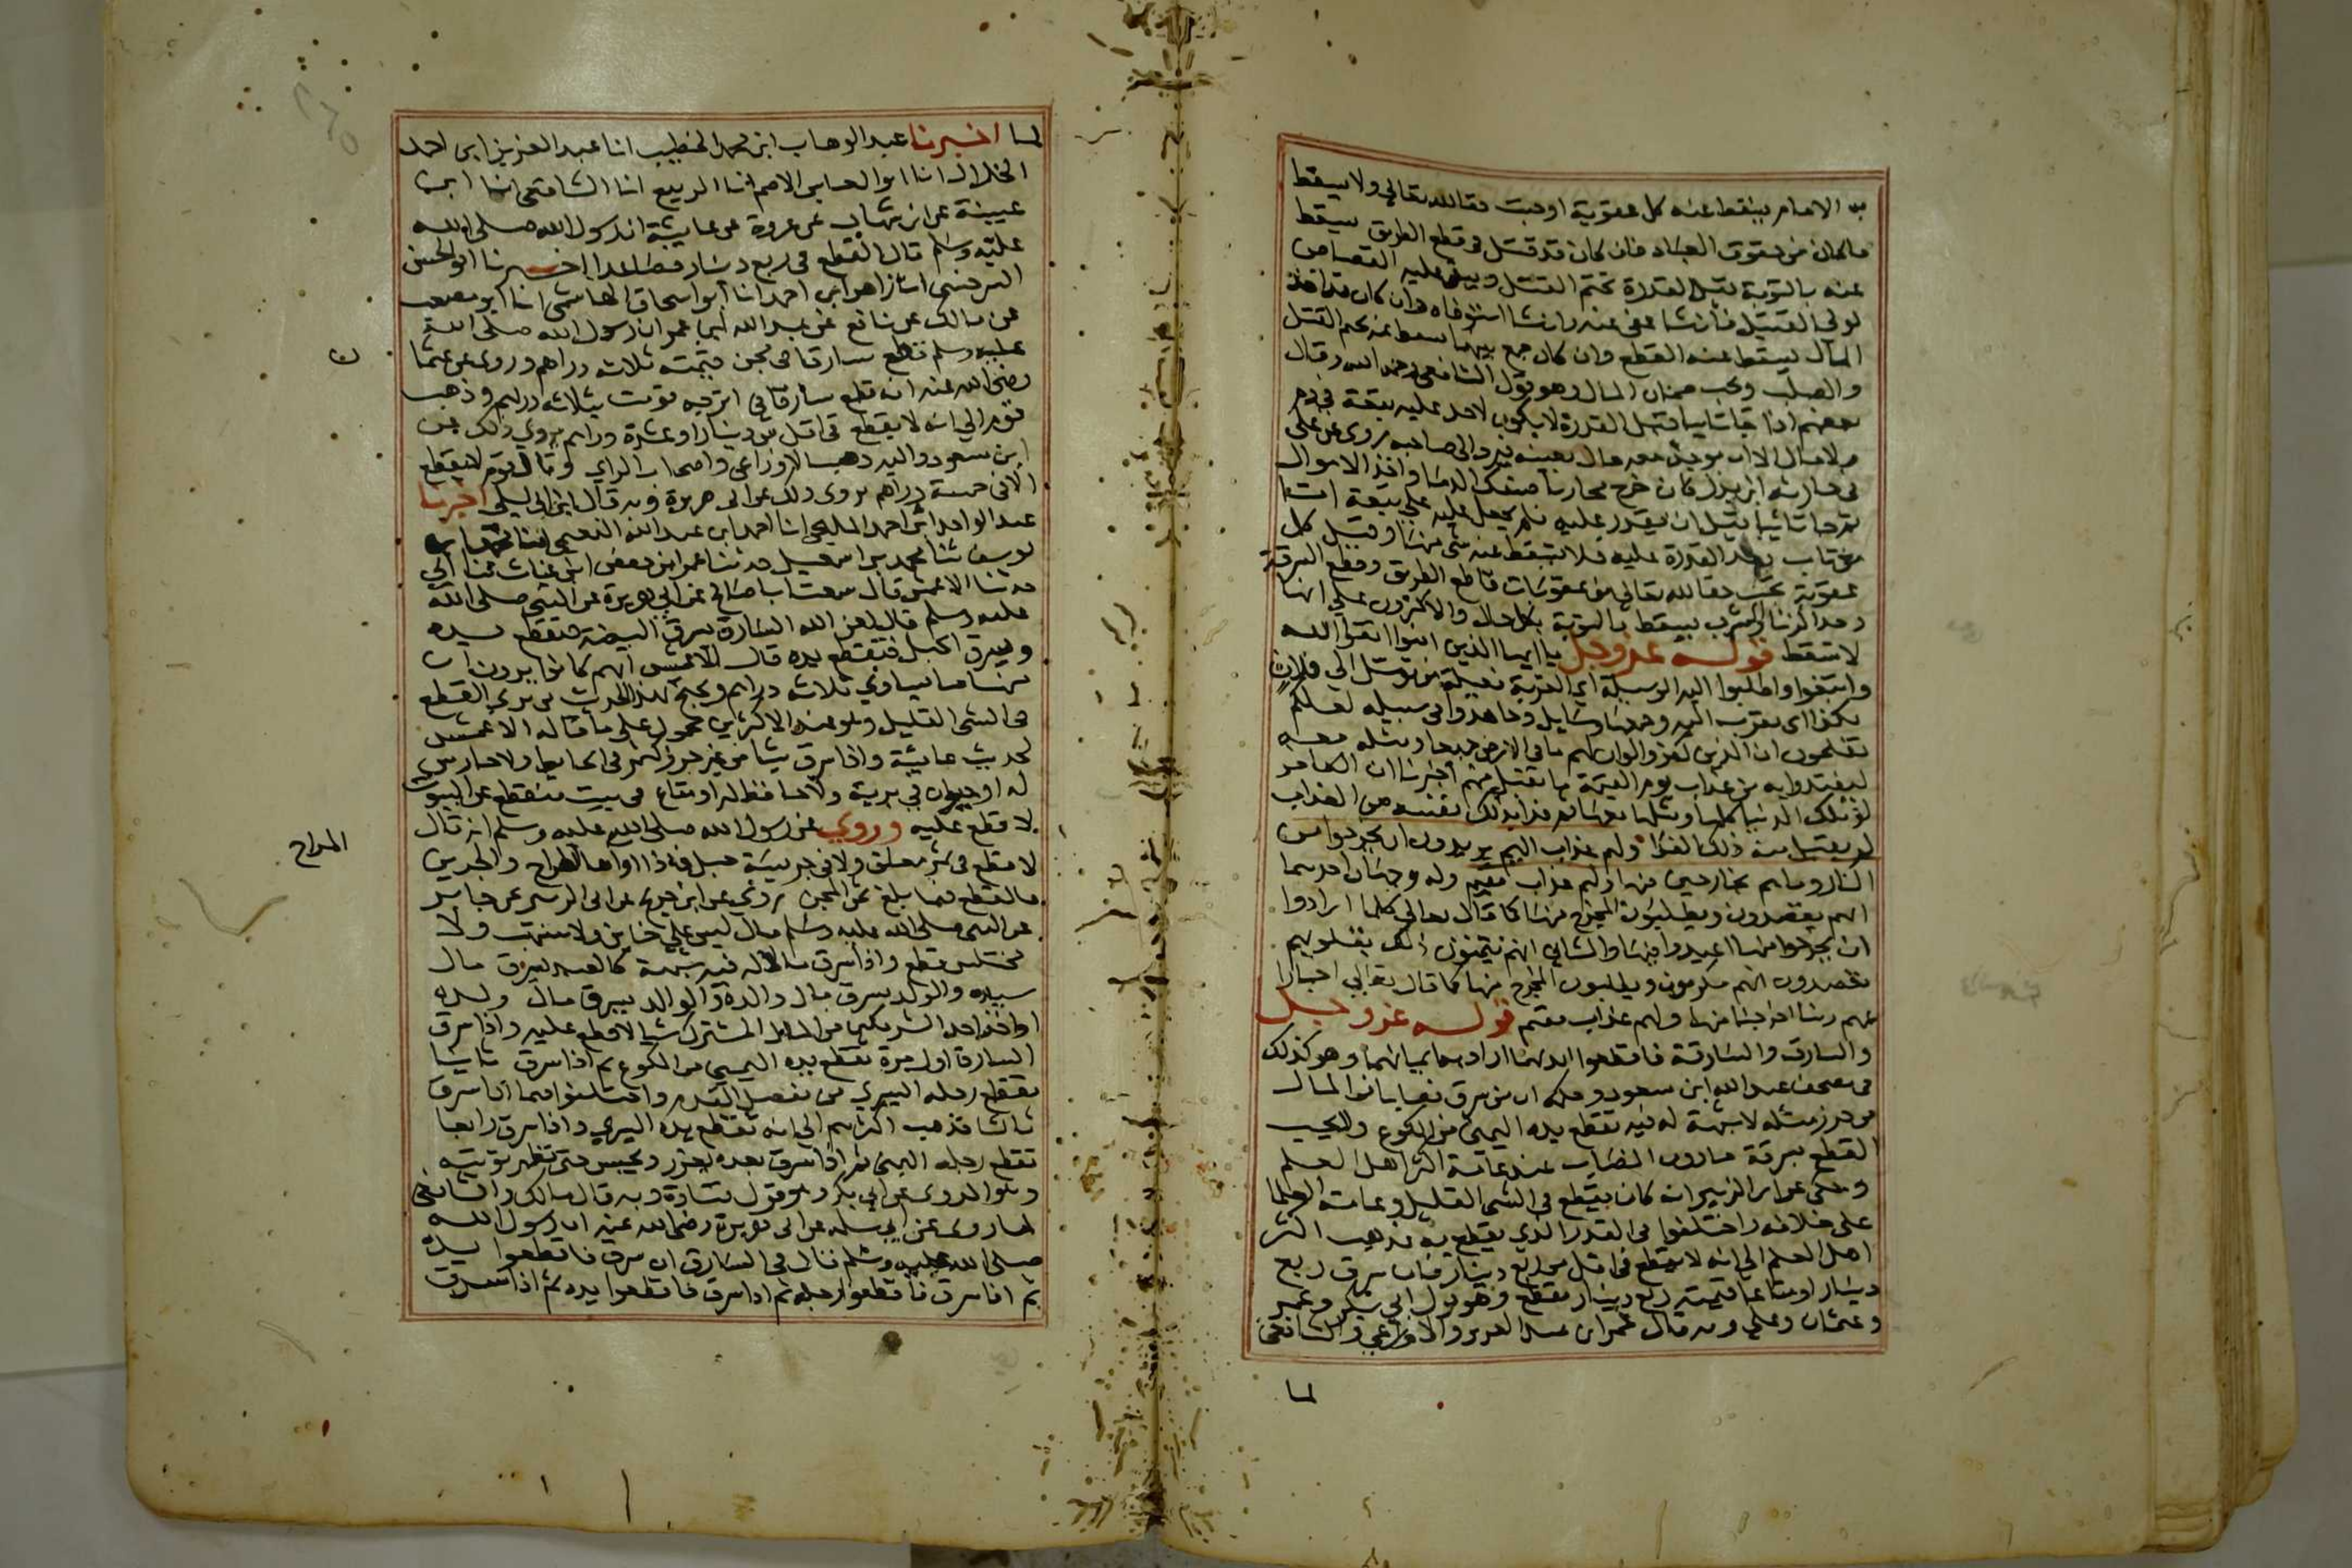 به الامام يسقط عنه كل عقوبة اوجبت حقا لله تعالى ولا يسقط
ما كان من حقوق العباد فان كان قد قتل في قطع الطريق يسقط
عنه بالتوبة قبل القدرة تحتم القتل ويبقى عليه القصاص
لولي القتيل فان شا عفى عنه وان شا استوفاه وان كان قد اخذ
المال يسقط عنه القطع وان كان جمع بينهما سقط عنه تحتم القتل
والصلب ويجب ضمان المال وهو قول الشافعي رحمه الله وقال
بعضهم اذا جا تايبا قبل القدرة لا يكون لاحد عليه تبعة في دم
ولا مال الا ان يوجد معه مال بعينه فيرد الى صاحبه روى عن علي
في حارثة ابن بدر كان خرج محاربا فسفك الدما واخذ الاموال
ثم جا تايبا قبل ان يقدر عليه فلم يجعل عليه علي تبعة اما
من تاب بعد القدرة عليه فلا يسقط عنه شي منها وقيل كل
عقوبة تجب حقا لله تعالى من عقوبات قاطع الطريق وقطع السرقة
وحد الزنا والشرب يسقط بالتوبة بكل حال والاكثرون على انها
لا تسقط قوله عز وجل يا ايها الذين امنوا اتقوا الله
وابتغوا واطلبوا اليه الوسيلة اي القربة فعيلة من توسل الى فلان
بكذا اي تقرب اليه وجمعها وسايل وجاهدوا في سبيله لعلكم
تفلحون ان الذين كفروا لو ان لهم ما في الارض جميعا ومثله معه
ليفتدوا به من عذاب يوم القيمة ما تقبل منهم اخبرنا ان الكافر
لو ملك الدنيا كلها ومثلها معها ثم فدا بذلك نفسه من العذاب
لم يقبل منه ذلك الفدا ولهم عذاب اليم يريدون ان يخرجوا من
النار وما هم بخارجين منها ولهم عذاب مقيم وله وجهان احدهما
انهم يقصدون ويطلبون المخرج منها كما قال تعالى كلما ارادوا
ان يخرجوا منها اعيدوا فيها والثاني انهم يتمنون ذلك بقلوبهم
يقصدون انهم ويطلبون المخرج منها كما قال تعالى اخبارا
عنهم ربنا اخرجنا منها ولهم عذاب مقيم قوله عز وجل
والسارق والسارقة فاقطعوا ايديهما اراد به ايمانهما وهو كذلك
في مصحف عبد الله ابن مسعود وحكمه ان من سرق نصابا من المال
من حرز مثله لا شبهة له فيه تقطع يده اليمنى من الكوع ولا يجب
القطع بسرقة ما دون النصاب عند عامة اكثر اهل العلم
وحكى عن ابن الزبير انه كان يقطع في الشي القليل وعامة العلما
على خلافه واختلفوا في القدر الذي يقطع به فذهب اكثر
اهل العلم الى انه لا يقطع في اقل من ربع دينار فان سرق ربع
دينار او متاعا قيمته ربع دينار يقطع وهو قول ابي بكر وعمر
وعثمان وعلي وبه قال عمر ابن عبد العزيز والاوزاعي والشافعي
لما
لما اخبرنا عبد الوهاب ابن محمد الخطيب انا عبد العزيز ابن احمد
الخلال انا ابو العباس الاصم انا الربيع انا الشافعي انا ابن
عيينة عن ابن شهاب عن عروة عن عايشة ان رسول الله صلى الله
عليه وسلم قال القطع في ربع دينار فصاعدا اخبرنا ابو الحسن
السرخسي انا زاهر ابن احمد انا ابو اسحاق الهاشمي انا ابو مصعب
عن مالك عن نافع عن عبد الله ابن عمر ان رسول الله صلى الله
عليه وسلم قطع سارقا في مجن قيمته ثلاثة دراهم وروى عن عثما
ن
رضي الله عنه انه قطع سارقا في اترجه قومت بثلاثة دراهم وذهب
قوم الى انه لا يقطع في اقل من دينار او عشرة دراهم يروى ذلك عن
ابن مسعود واليه ذهب الاوزاعي واصحاب الراي وقال قوم لا يقطع
الا في خمسة دراهم يروى ذلك عن ابي هريرة وبه قال ابن ابي ليلى اخبرنا
عبد الواحد ابن احمد المليحي انا احمد ابن عبد الله النعيمي انا محمد ابن
يوسف ثنا محمد بن اسمعيل حدثنا عمر ابن حفص ابن غياث حدثنا ابي
حدثنا الاعمش قال سمعت ابا صالح عن ابي هريرة عن النبي صلى الله
عليه وسلم قال لعن الله السارق يسرق البيضة فتقطع يده
ويسرق الحبل فتقطع يده قال الاعمش انهم كانوا يرون ان
منها ما يساوي ثلاثة دراهم ويحتج بهذا الحديث من يرى القطع
في الشي القليل وهو عند الاكثرين محمول على ما قاله الاعمش
لحديث عايشة واذا سرق شيا من غير حرز كثمر في حايط ولا حارس
له او حيوان في برية ولا حافظ له او متاع في بيت منقطع عن البيوت
لا قطع عليه وروي عن رسول الله صلى الله عليه وسلم انه قال
لا قطع في ثمر معلق ولا في حريسة جبل فاذا اواها المراح والجرين
المراح
فالقطع فيما بلغ ثمن المجن وروي عن ابن جريج عن ابي الزبير عن جابر
عن النبي صلى الله عليه وسلم قال ليس على خاين ولا منتهب ولا
مختلس قطع واذا سرق مالا له فيه شبهة كالعبد يسرق مال
سيده والولد يسرق مال والده والوالد يسرق مال ولده
او اخذ احد الشريكين من المال المشترك شيا لا قطع عليه واذا سرق
السارق اول مرة تقطع يده اليمنى من الكوع ثم اذا سرق ثانيا
تقطع رجله اليسرى من مفصل القدم واختلفوا فيما اذا سرق
ثالثا فذهب اكثرهم الى انه تقطع يده اليسرى واذا سرق رابعا
تقطع رجله اليمنى ثم اذا سرق بعده يعزر ويحبس حتى تظهر توبته
وهو المروي عن ابي بكر وهو قول قتادة وبه قال مالك والشافعي
لما روى عن ابي سلمة عن ابي هريرة رضي الله عنه ان رسول الله
صلى الله عليه وسلم قال في السارق ان سرق فاقطعوا يده
ثم اذا سرق فاقطعوا رجله ثم اذا سرق فاقطعوا يده ثم اذا سرق